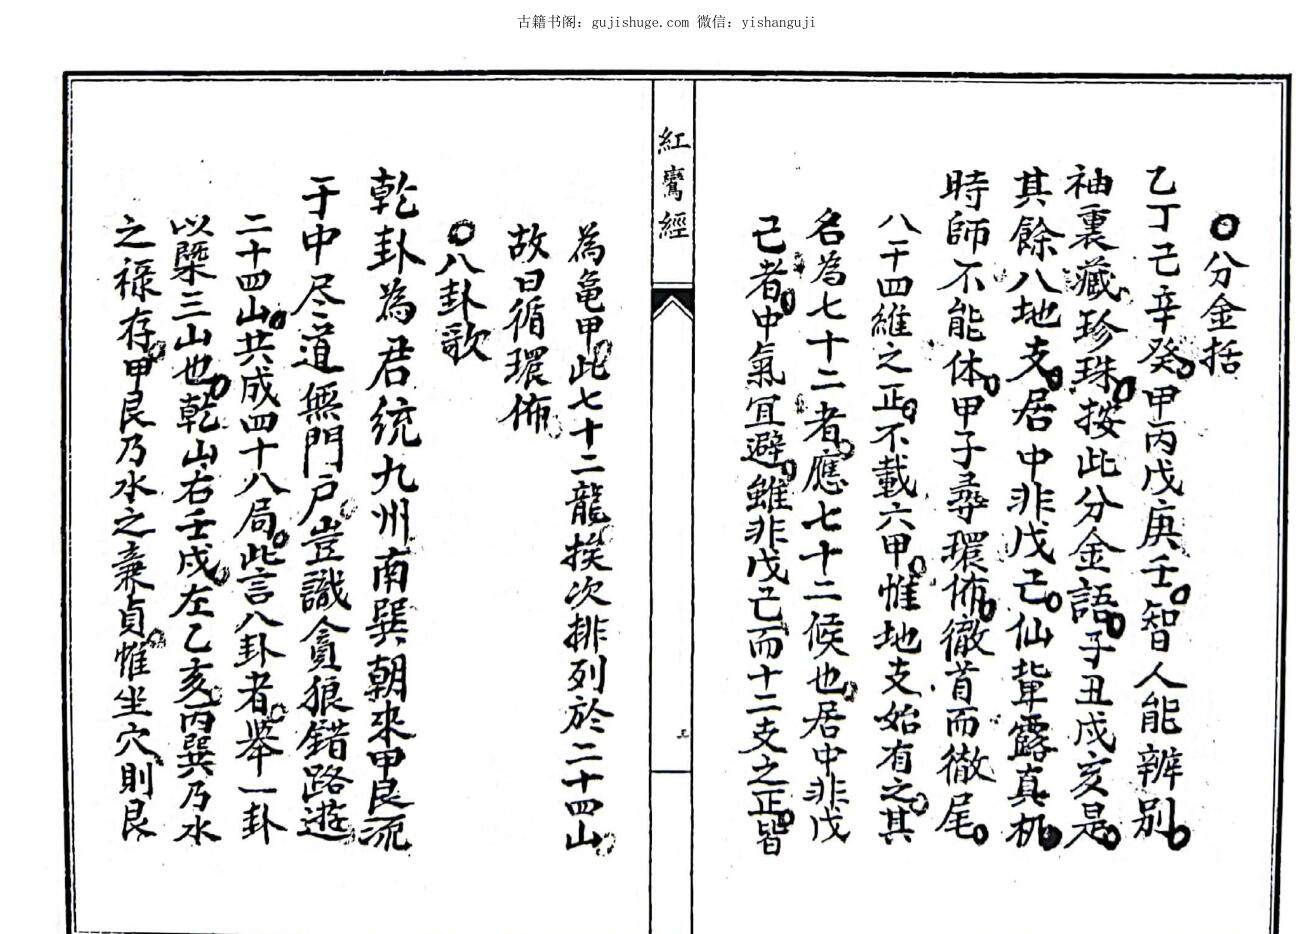 古籍书阁：gujishuge.com 微信：yishanguji
○分金括
乙丁己辛癸甲丙戊庚壬智人能辨别
袖裏藏珍珠按此分金語子丑戌亥是
其餘八地支居中非戊己仙輩露真机
時師不能体甲子尋環佈徹首而徹尾
八干四維之正不載六甲惟地支始有之其
名為七十二者應七十二候也居中非戊
己者中氣宜避雖非戊己而十二支之正皆
紅鸞經
上
為亀甲此七十二龍挨次排列於二十四山
故曰循環佈
○八卦歌
乾卦為君統九州南巽朝來甲艮流
于中尽道無門戶豈識貪狼錯路遊
二十四山共成四十八局此言八卦者舉一卦
以槩三山也乾山右壬戌左乙亥丙巽乃水
之禄存甲艮乃水之亷貞惟坐穴則艮